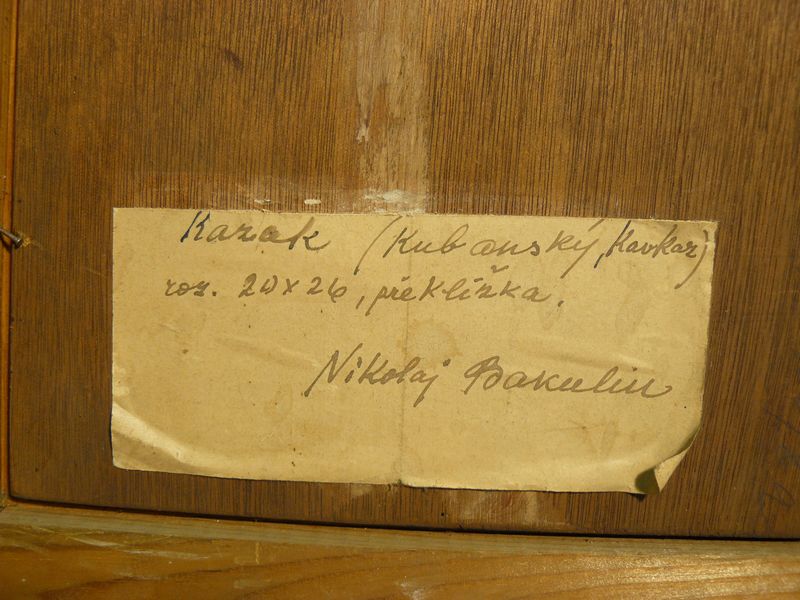 Kazak (Kubanský, Kavkaz)
roz. 20x26, překližka.
Nikolaj Bakulin